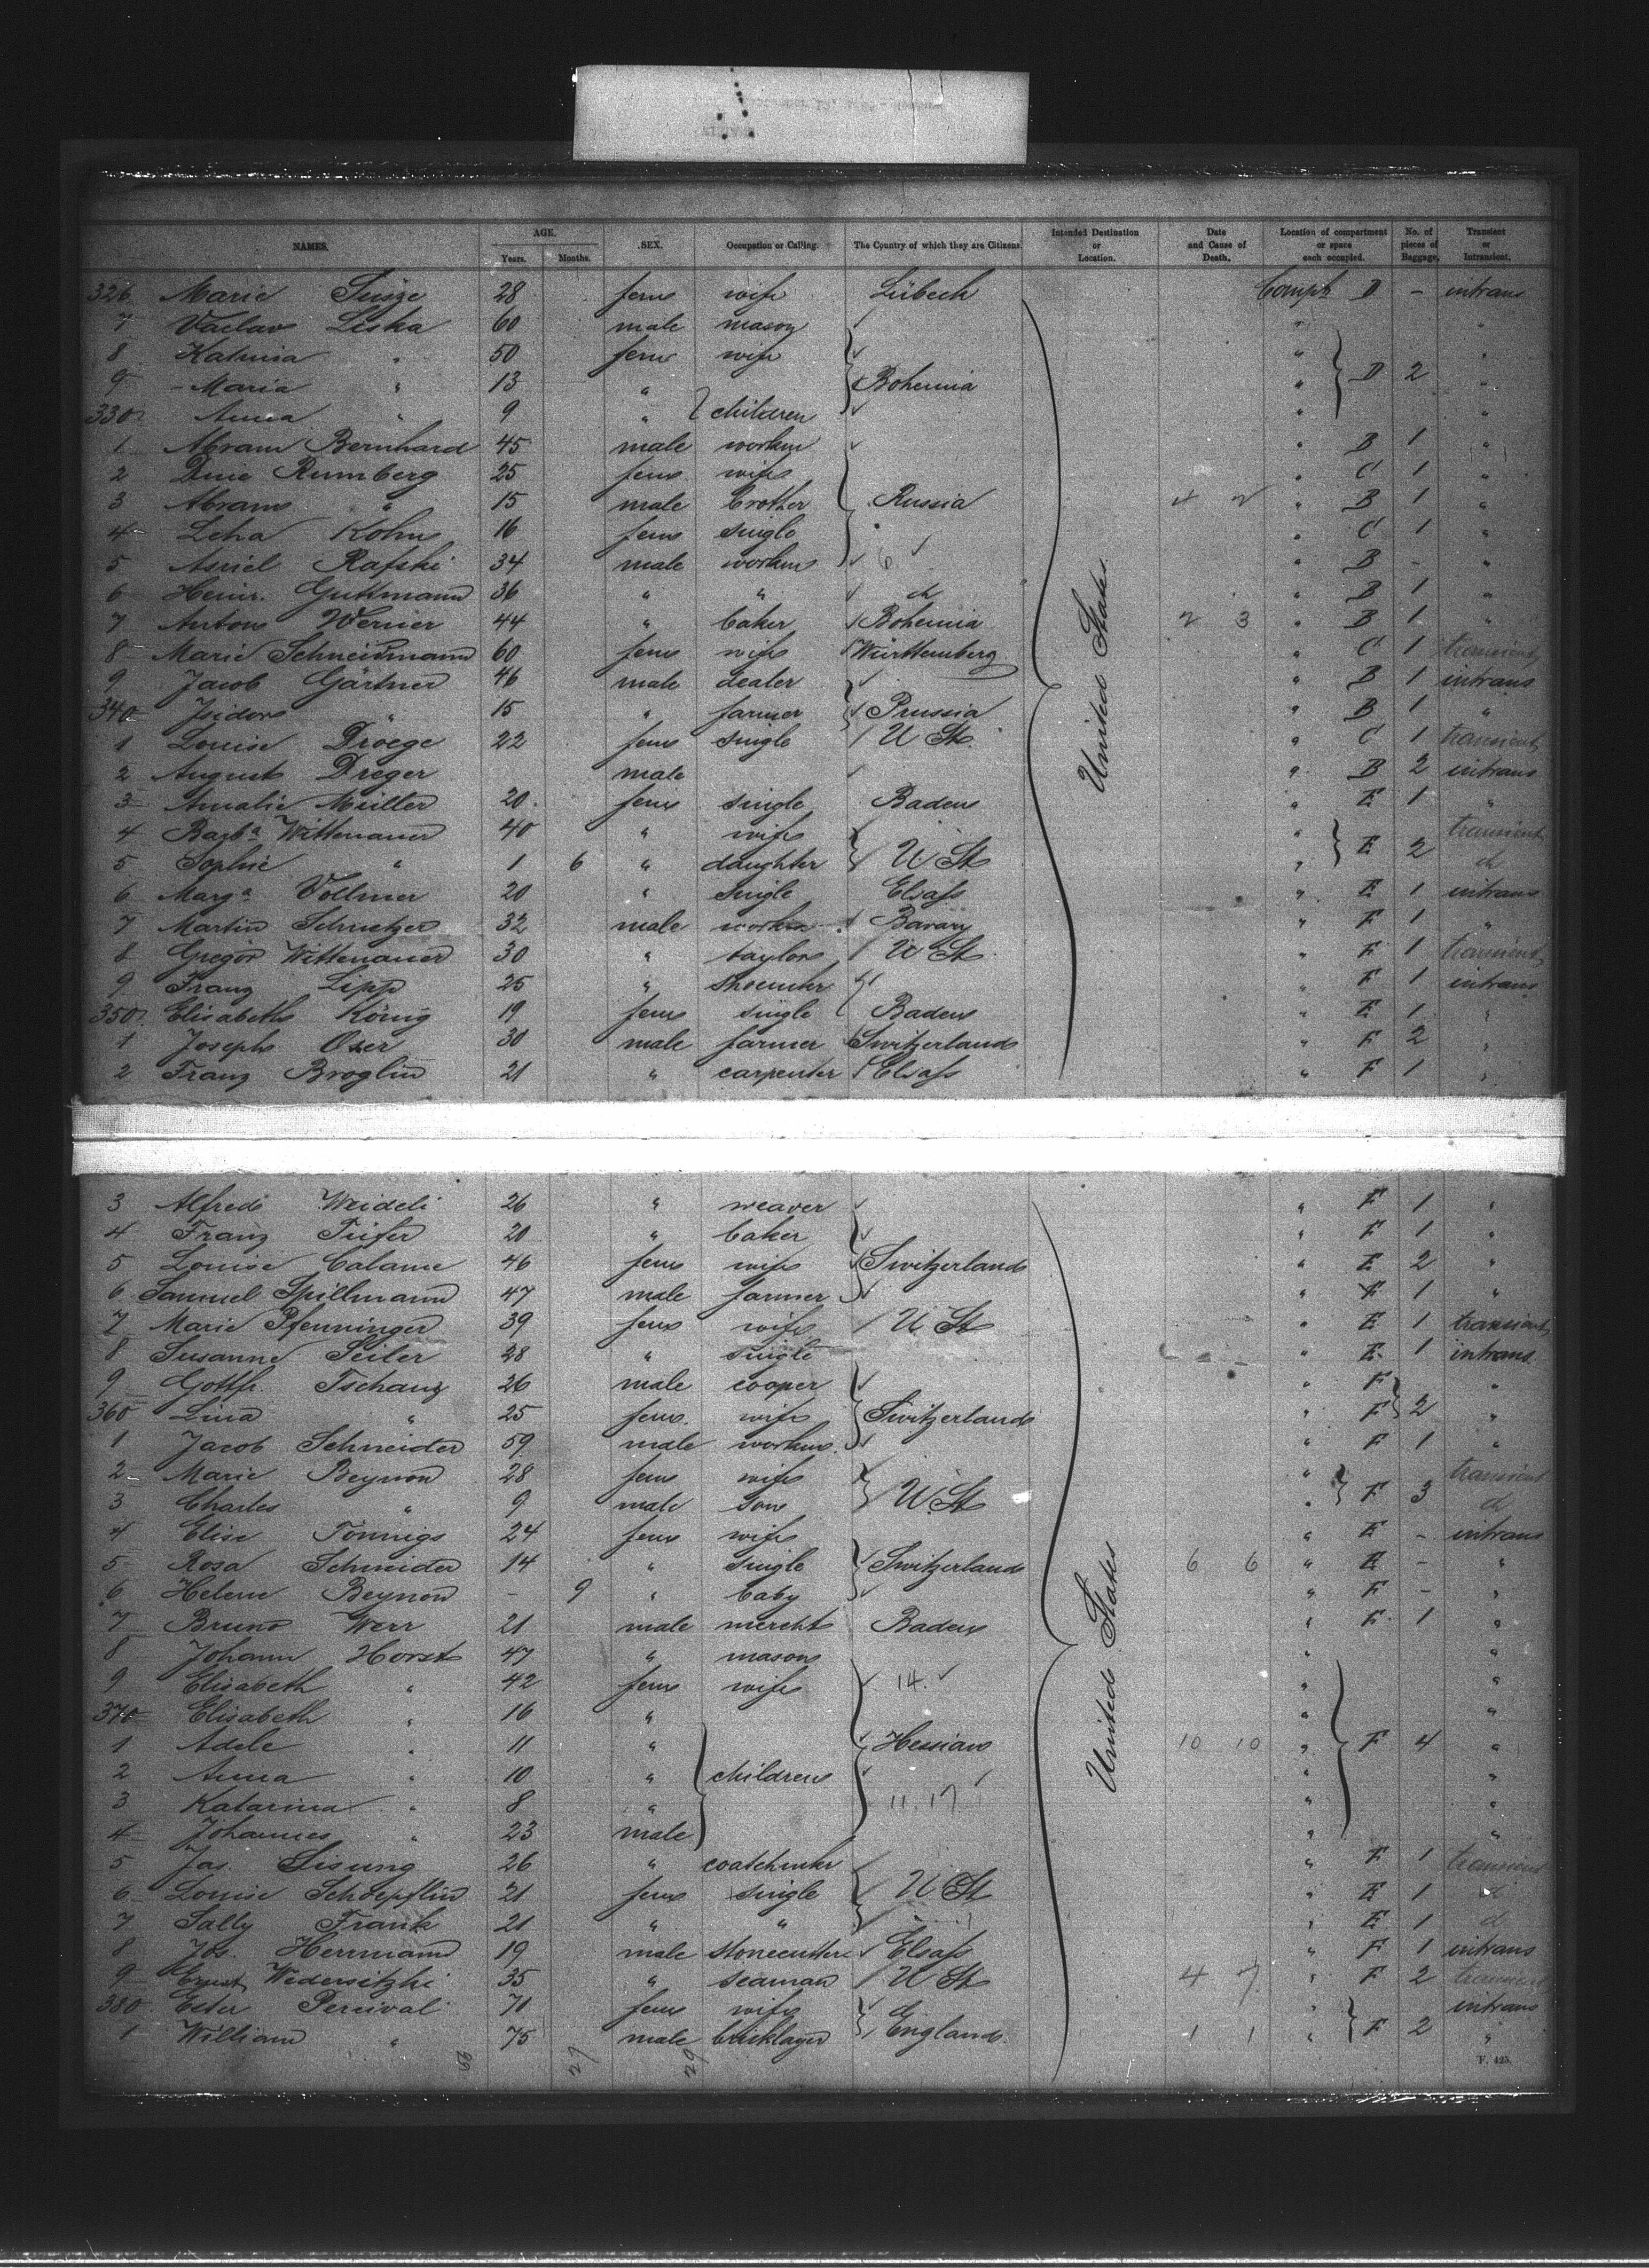 NAMES. AGE. Years. Months. SEX. Occupation or Calling. The Country of which they are Citizens. Intended Destination or Location. Date and Cause of Death. Location of compartment or space each occupied. No. of pieces of Baggage. Transient or Intransient.
326 Marie 28 fem wife Lübeck Compt D - intrans
7 Vaclav Liska 60 male mason " "
8 Katerina " 50 fem wife " "
9 Maria " 13 " Bohemia " D 2 "
330 Anna " 9 " children " "
1 Abram Bernhard 45 male workm " B 1 "
2 Rumberg 25 fem wife " C 1 "
3 Abram " 15 male brother Russia 4 2 " B 1 "
4 Leha Kohn 16 fem single " " C 1 "
5 Asriel Rafski 34 male workm 6 " B - "
6 Heinr. Guttmann 36 " " do " B 1 "
7 Anton Werner 44 " baker Bohemia 2 3 " B 1 "
8 Marie Schneidmann 60 fem wife Württemberg " C 1 transient
9 Jacob Gärtner 46 male dealer " B 1 intrans
340 Isidor " 15 " farmer Prussia " B 1 "
1 Louise Droege 22 fem single U St. " C 1 transient
2 August Dreger male " B 2 intrans
3 Amalie Müller 20 fem single Baden " E 1 "
4 Barba Wittenauer 40 " wife " transient
5 Sophie " 1 6 " daughter U St " E 2 do
6 Marga Vollmer 20 " single Elsass " E 1 intrans
7 Martin Schnetzer 32 male workm Bavary " F 1 "
8 Gregor Wittenauer 30 " taylor U St. " F 1 transient
9 Franz Lipp 25 " shoemker " F 1 intrans
350 Elisabeth König 19 fem single Baden " E 1 "
1 Joseph Oser 30 male farmer Switzerland " F 2 "
2 Franz Broglin 21 " carpenter Elsass " F 1 "
United States.
3 Alfred Weideli 26 " weaver " F 1 "
4 Franz 20 " baker " F 1 "
5 Louise Calame 46 fem wife Switzerland " E 2 "
6 Samuel Spillmann 47 male farmer " F 1 "
7 Marie Pfenninger 39 fem wife U St " E 1 transient
8 Susanne Seiler 28 " single " E 1 intrans
9 Gottfr. Tschanz 26 male cooper " F "
360 Lina " 25 fem. wife Switzerland " F 2 "
1 Jacob Schneider 59 male workm. " F 1 "
2 Marie Beynon 28 fem wife " transient
3 Charles " 9 male son U. St " F 3 do
4 Elise Tönnigs 24 fem wife " E - intrans
5 Rosa Schneider 14 " single Switzerland 6 6 " E - "
6 Helene Beynon - 9 " baby " F - "
7 Bruno Werr 21 male mercht Baden " F 1 "
8 Johann Horst 47 " mason " "
9 Elisabeth " 42 fem wife 14. " "
370 Elisabeth " 16 " " "
1 Adele " 11 " Hessian 10 10 " F 4 "
2 Anna " 10 " children " "
3 Katarina " 8 " 11 17 " "
4 Johannes " 23 male " "
5 Jas. Sisung 26 " coatchmkr " F 1 transient
6 Louise Schoepflin 21 fem single U St " E 1 d
7 Sally Frank 21 " " " E 1 d
8 Jos. Herrmann 19 male stonecutter Elsass " F 1 intrans
9 Ernst Wedersitzki 35 " seaman U St 4 7 " F 2 transient
380 Ester Percival 71 fem wife " intrans
1 William " 75 male bricklayer England. 1 1 " F 2 "
United States
29 29
F. 425.